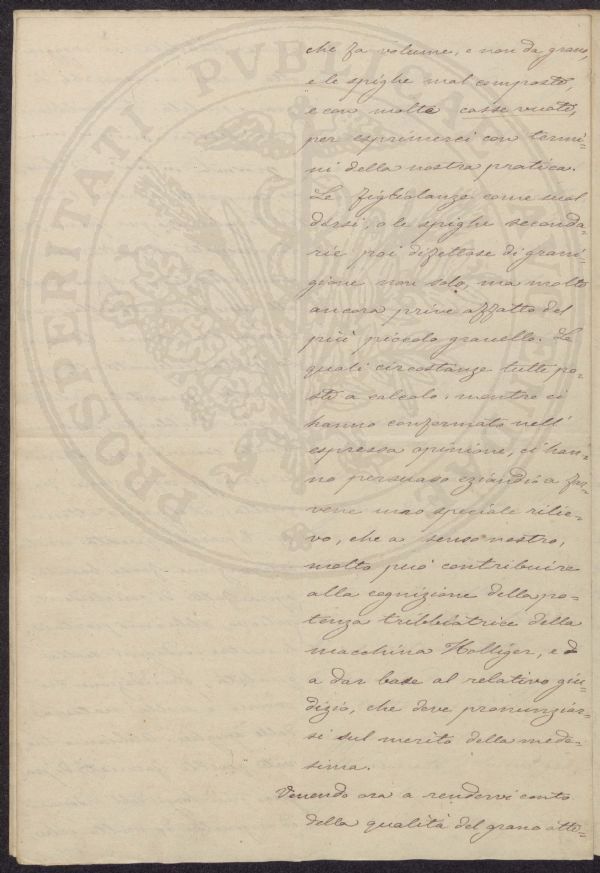 che fa volume, e non da grano,
e le spighe mal composte,
e con molte casse vuote,
per esprimerci con termi=
ni della nostra pratica.
Le figliolanze come suol
dirsi, o le spighe seconda=
rie poi difettose di grani=
gione non solo, ma molte
ancora prive affatto del
più piccolo granello. Le
quali circostanze tutte po=
ste a calcolo, mentre ci
hanno confermato nell'
espressa opinione, ci han=
no persuaso eziandio a far=
vene uno speciale rilie=
vo, che a senso nostro,
molto può contribuire
alla cognizione della po=
tenza tribbiatrice della
macchina Holliger, e
a dar base al relativo giu=
dizio, che deve pronunziar=
si sul merito della mede=
sima.
Venendo ora a rendervi conto
della qualità del grano otte=
PROSPERITATI PVBLICAE